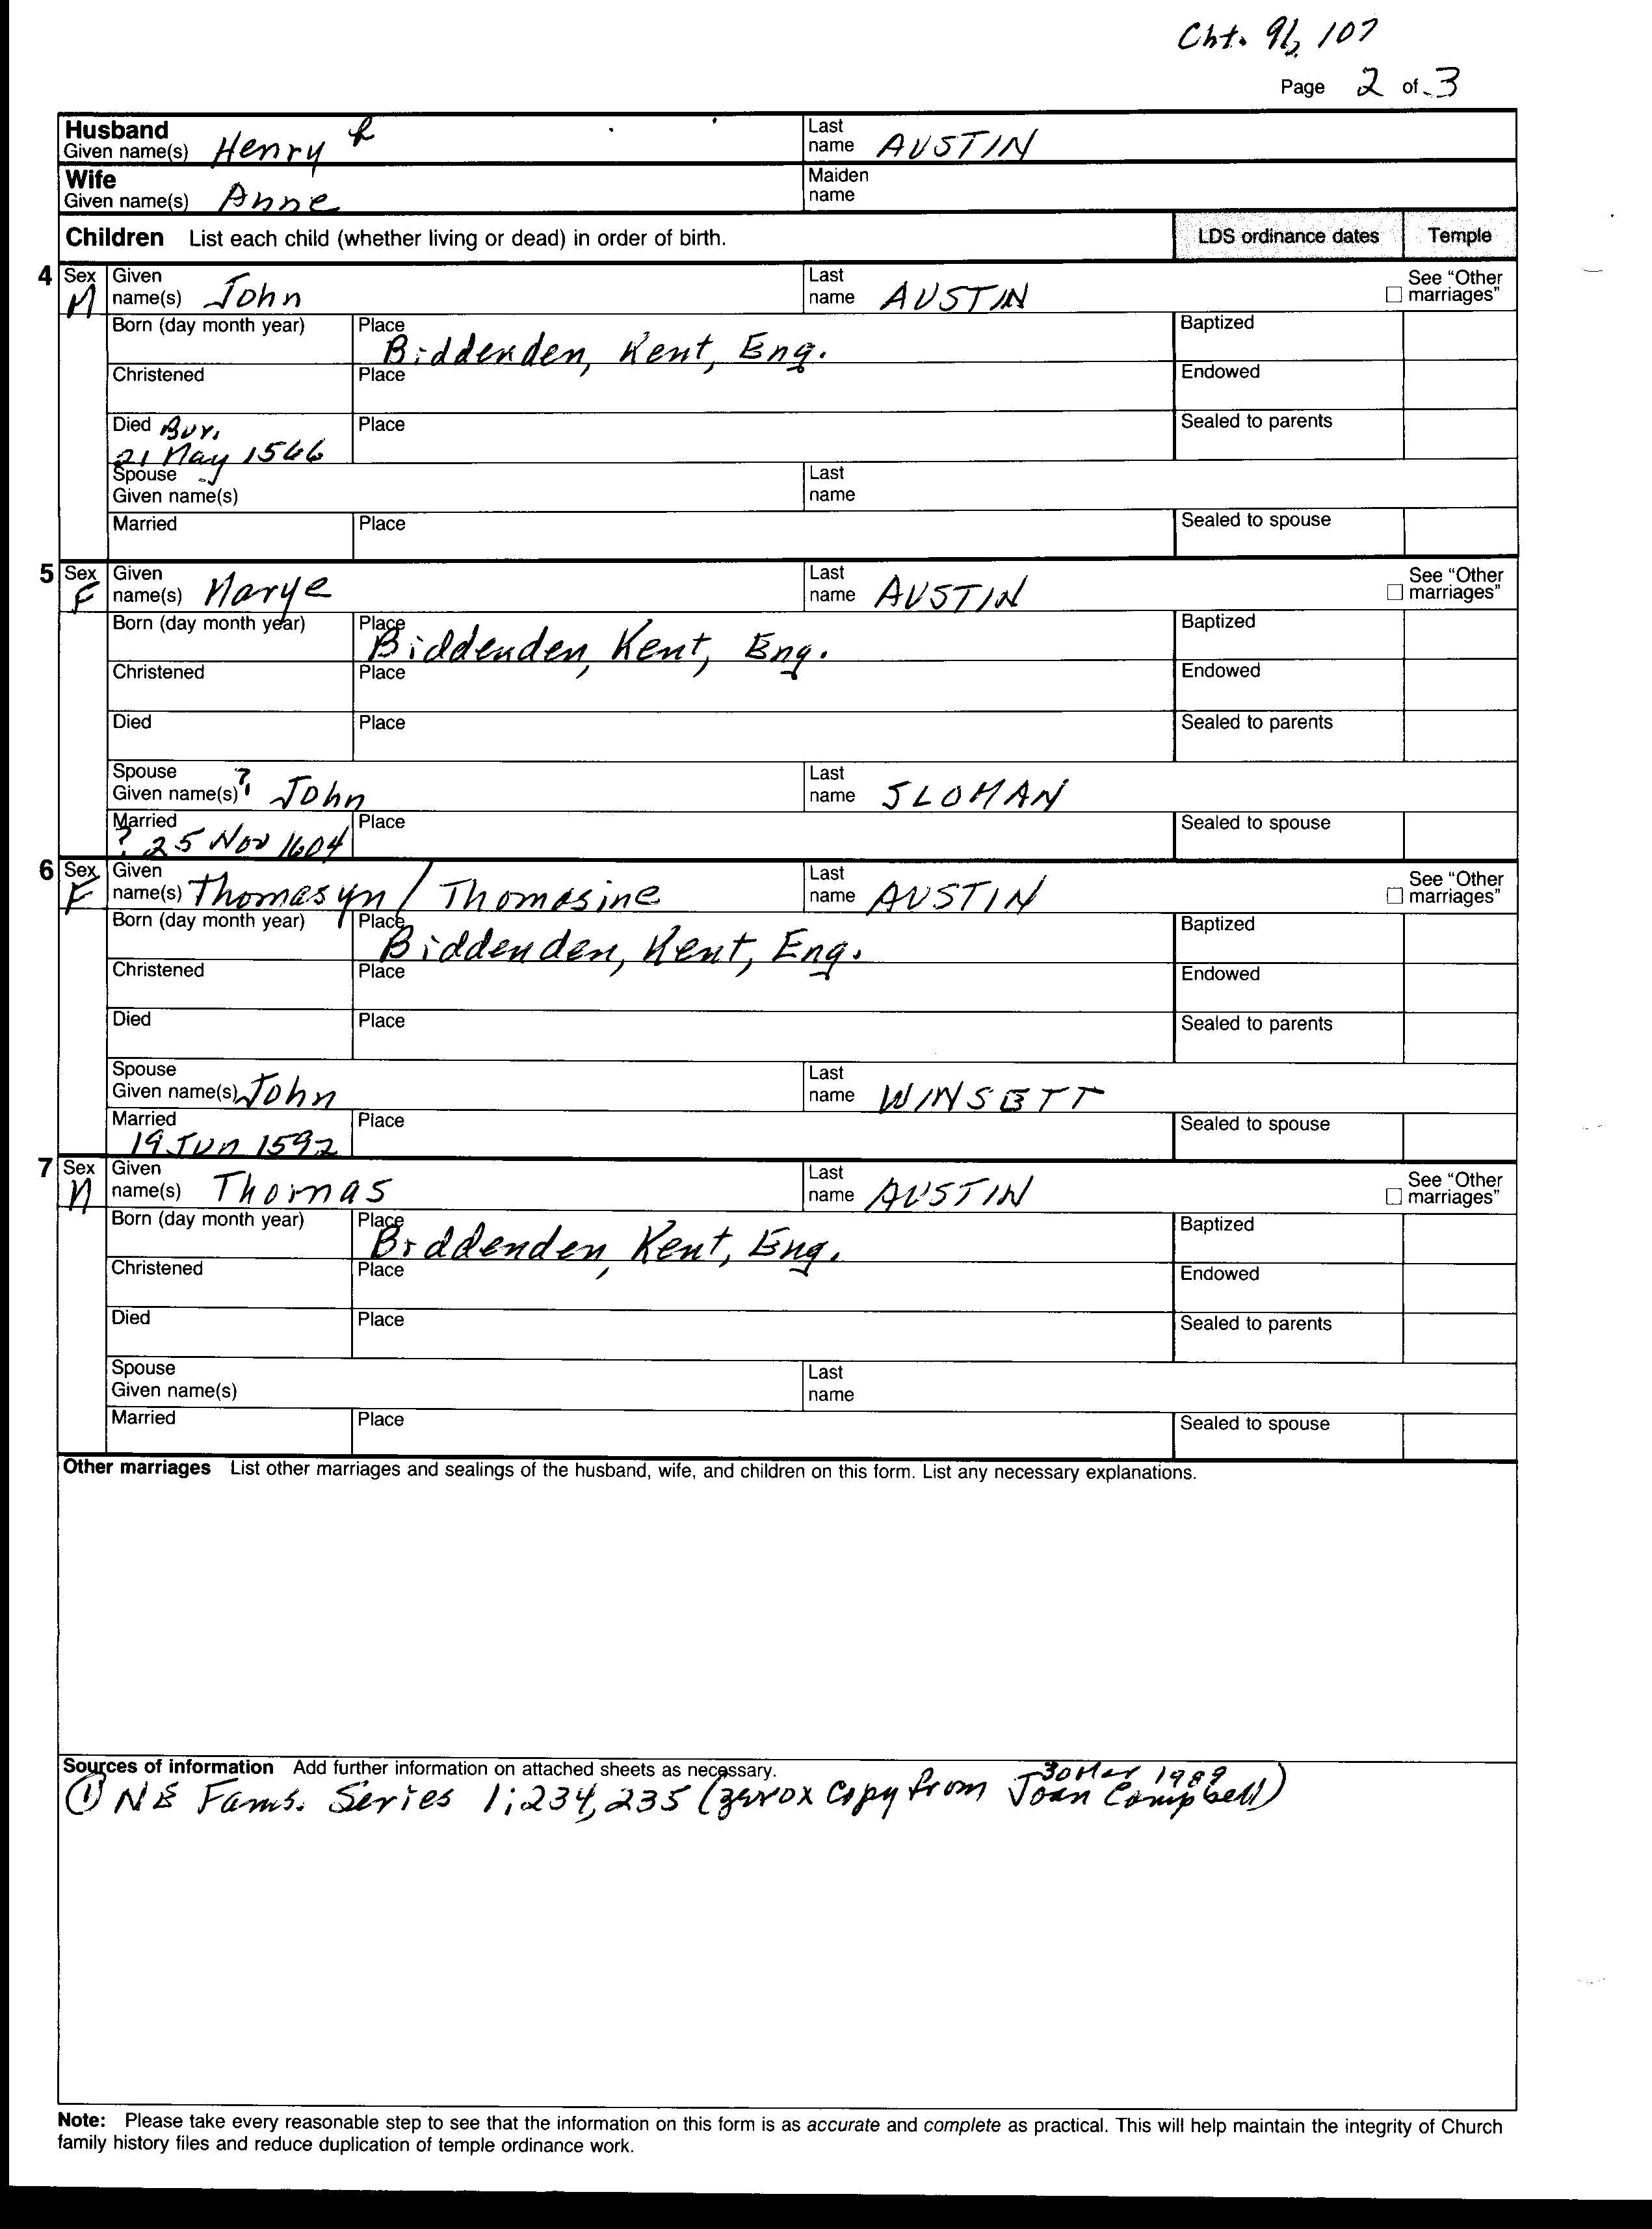 Cht. 96, 107
Page 2 of 3
Husband
Given name(s) Henry & Last name AUSTIN
Wife
Given name(s) Anne Maiden name
Children List each child (whether living or dead) in order of birth. LDS ordinance dates Temple
4 Sex M Given name(s) John Last name AUSTIN See "Other marriages"
Born (day month year) Place Biddenden, Kent, Eng. Baptized
Christened Place Endowed
Died Bur. 21 May 1566 Place Sealed to parents
Spouse Given name(s) Last name
Married Place Sealed to spouse
5 Sex F Given name(s) Marye Last name AUSTIN See "Other marriages"
Born (day month year) Place Biddenden, Kent, Eng. Baptized
Christened Place Endowed
Died Place Sealed to parents
Spouse Given name(s) ? John Last name SLOMAN
Married ? 25 Nov 1604 Place Sealed to spouse
6 Sex F Given name(s) Thomasyn / Thomasine Last name AUSTIN See "Other marriages"
Born (day month year) Place Biddenden, Kent, Eng. Baptized
Christened Place Endowed
Died Place Sealed to parents
Spouse Given name(s) John Last name WINSETT
Married 19 Jun 1592 Place Sealed to spouse
7 Sex M Given name(s) Thomas Last name AUSTIN See "Other marriages"
Born (day month year) Place Biddenden, Kent, Eng. Baptized
Christened Place Endowed
Died Place Sealed to parents
Spouse Given name(s) Last name
Married Place Sealed to spouse
Other marriages List other marriages and sealings of the husband, wife, and children on this form. List any necessary explanations.
Sources of information Add further information on attached sheets as necessary. 30 Mar 1989
① NE Fams. Series 1; 234, 235 (zerox copy from Joan Campbell)
Note: Please take every reasonable step to see that the information on this form is as accurate and complete as practical. This will help maintain the integrity of Church
family history files and reduce duplication of temple ordinance work.